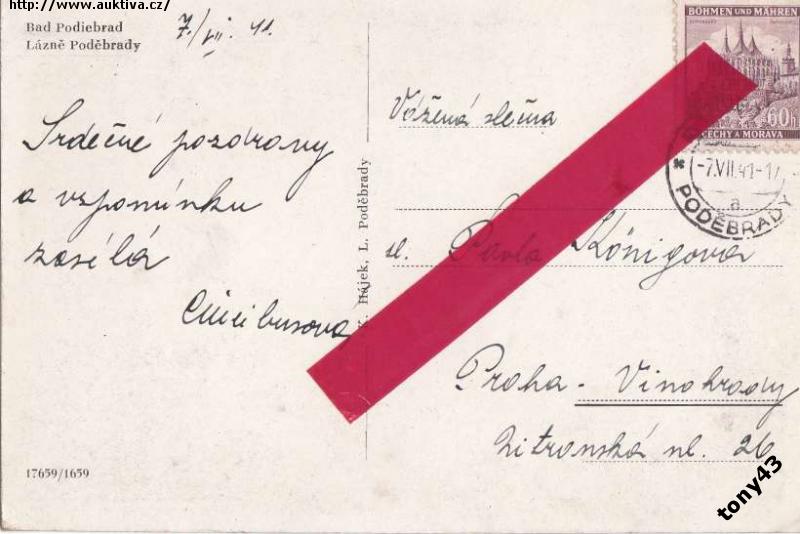 http://www.auktiva.cz/
Bad Podiebrad
Lázně Poděbrady
7./VII. 41.
Srdečné pozdravy
a vzpomínku
zasélá
17659/1659
K. Hájek, L. Poděbrady
BÖHMEN UND MÄHREN
60h
ČECHY A MORAVA
-7.VII.41-17
a
PODĚBRADY
Vážená slečna
sl. Pavla Königova
Praha - Vinohrady
ul. 26
tony43